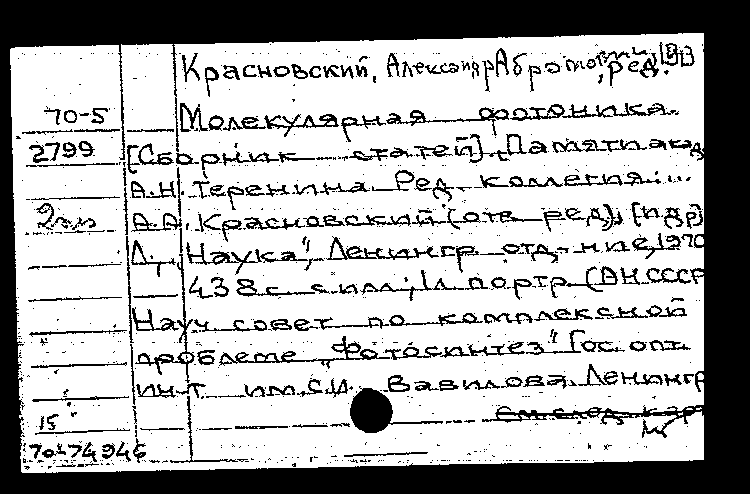 Красновский, Александр Абрамович, ред.
70-5 Молекулярная фотоника.
2799 [Сборник статей]. Памяти акад.
А.Н. Теренина. Ред. коллегия:...
А.А. Красновский (отв. ред), [и др]
Л., "Наука", Ленингр. отд-ние, 1970
438 с. с илл; 1 л. портр. (АН СССР
Науч. совет по комплексной
проблеме "Фотосинтез" Гос. опт.
ин-т им. С.И. Вавилова. Ленингр
15 см. след. карт
70-74946